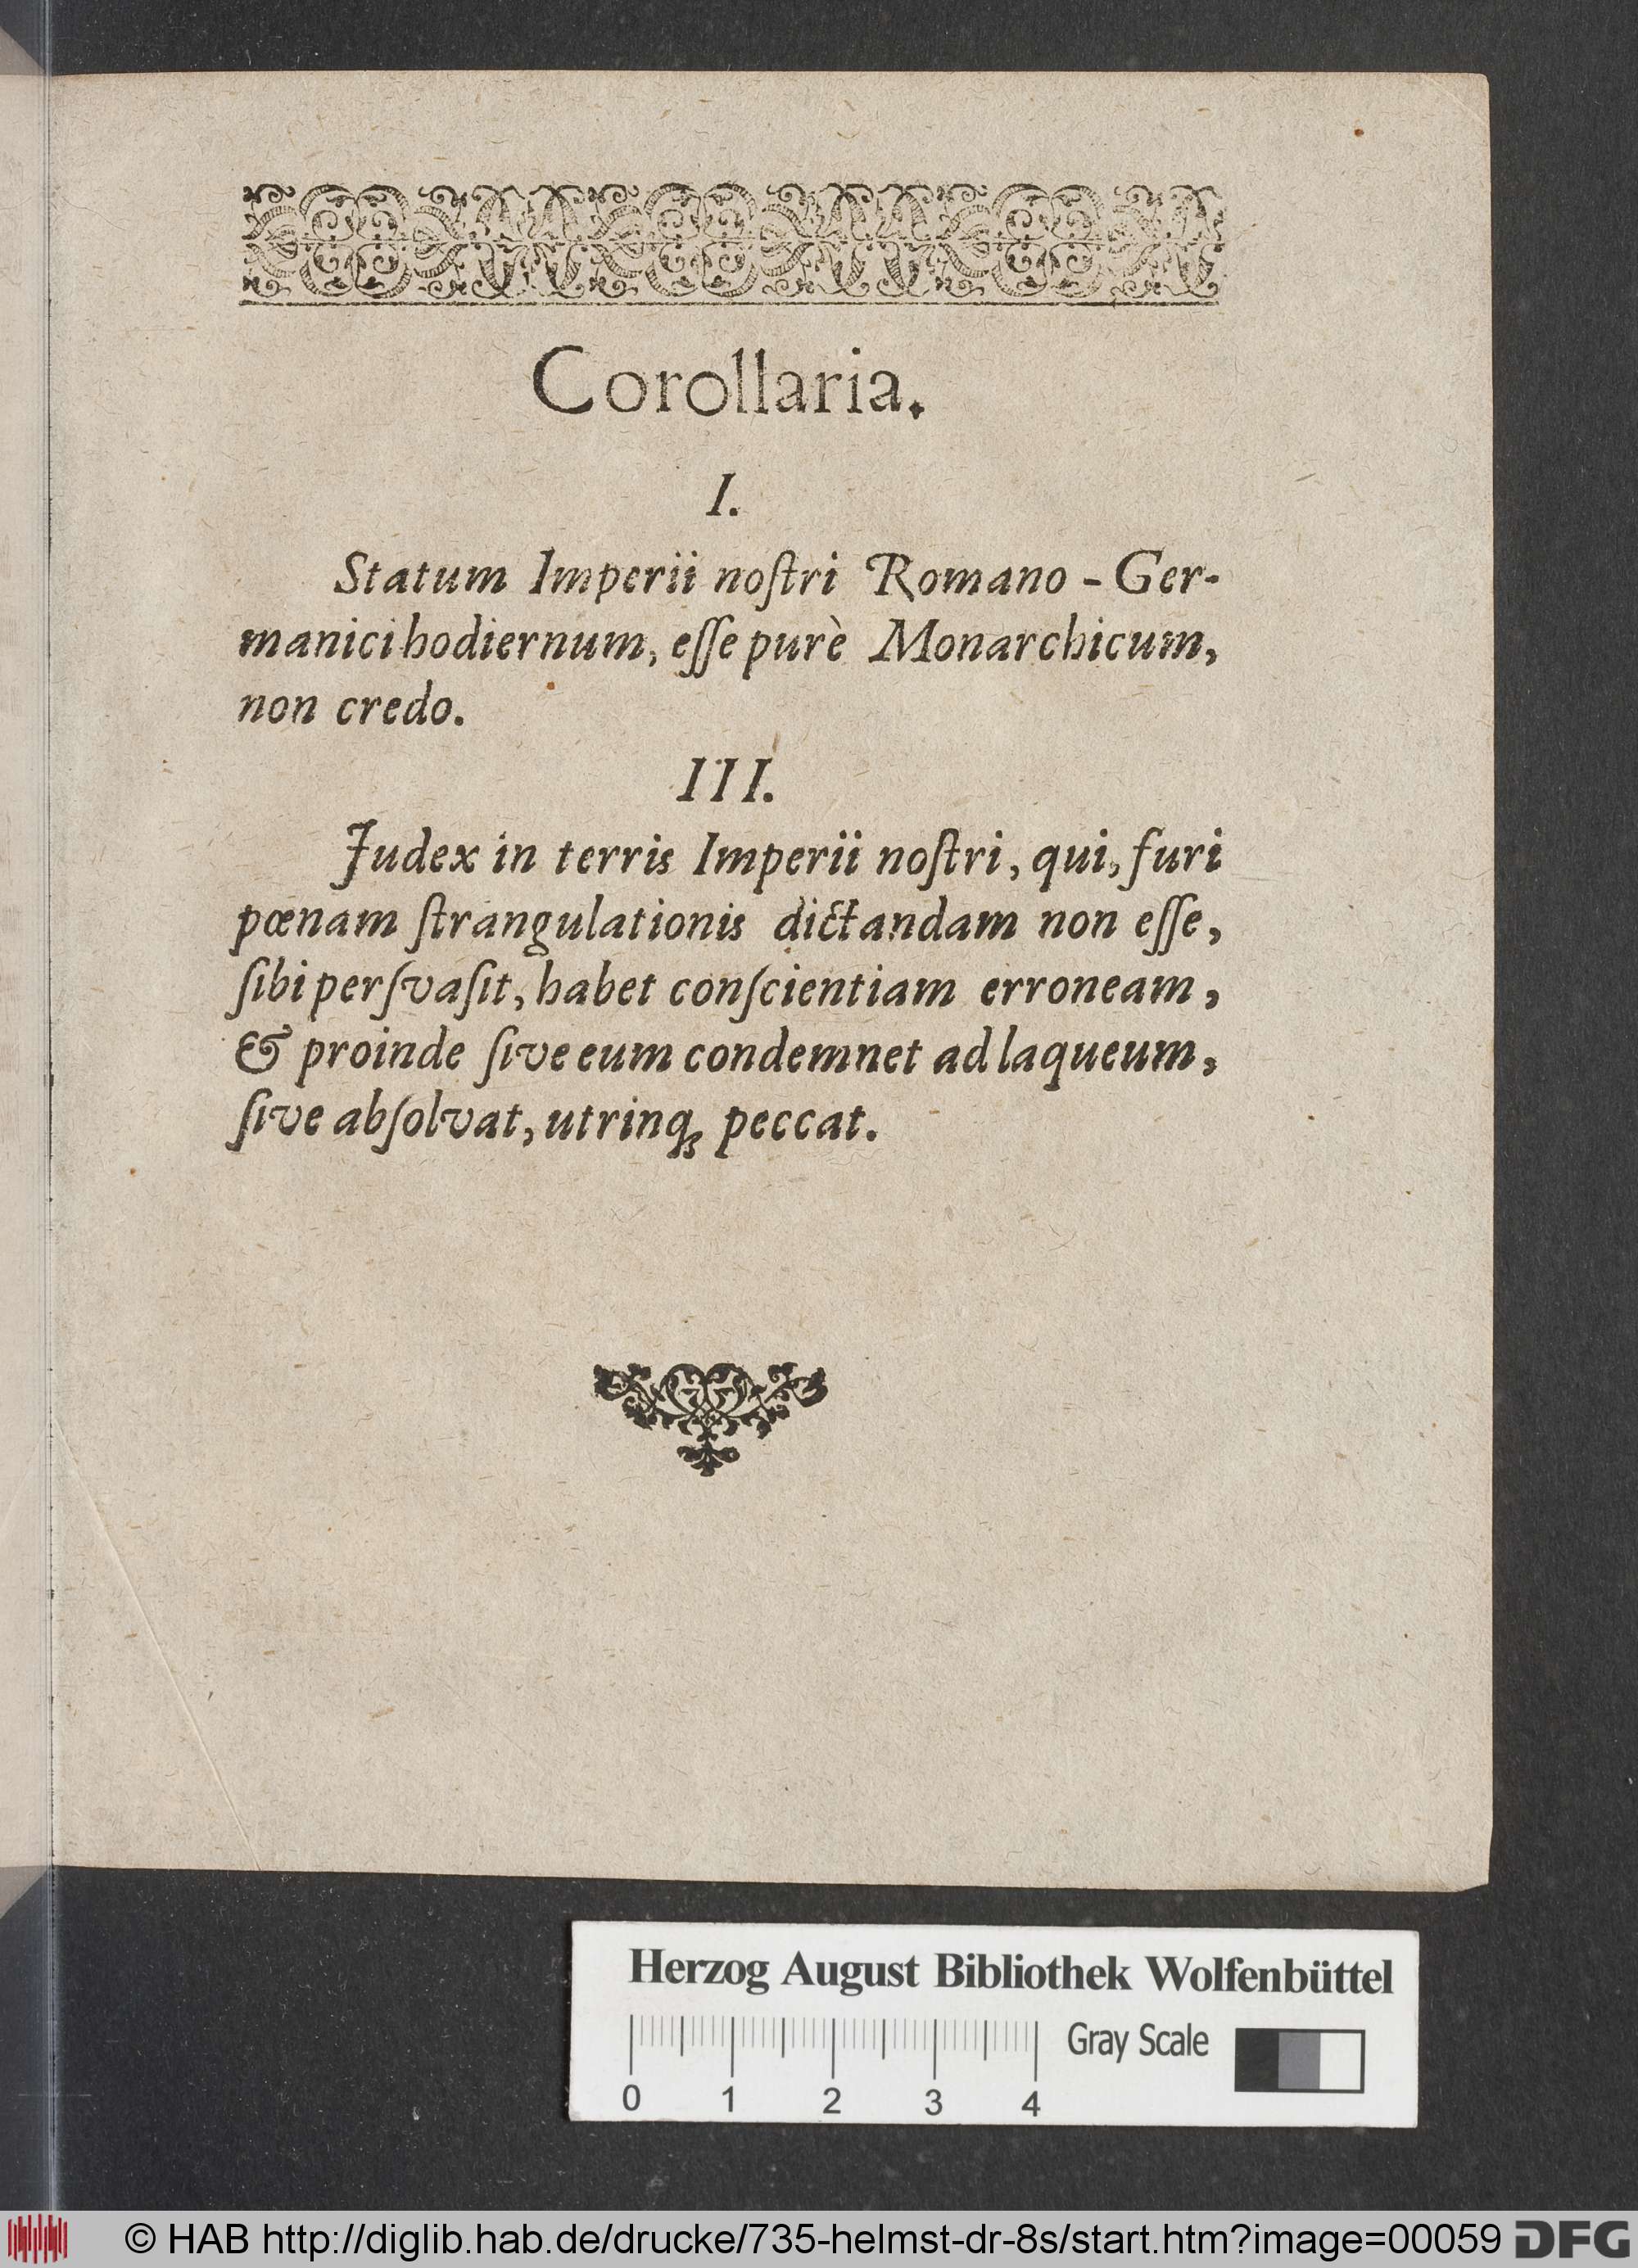 Corollaria.
I.
Statum Imperii noſtri Romano-Ger-
manici hodiernum, eſſe purè Monarchicum,
non credo.
III.
Judex in terris Imperii noſtri, qui, furi
pœnam ſtrangulationis dictandam non eſſe,
ſibi perſvaſit, habet conſcientiam erroneam,
& proinde ſive eum condemnet ad laqueum,
ſive abſolvat, utrinq; peccat.
Herzog August Bibliothek Wolfenbüttel
Gray Scale
0 1 2 3 4
© HAB http://diglib.hab.de/drucke/735-helmst-dr-8s/start.htm?image=00059 DFG